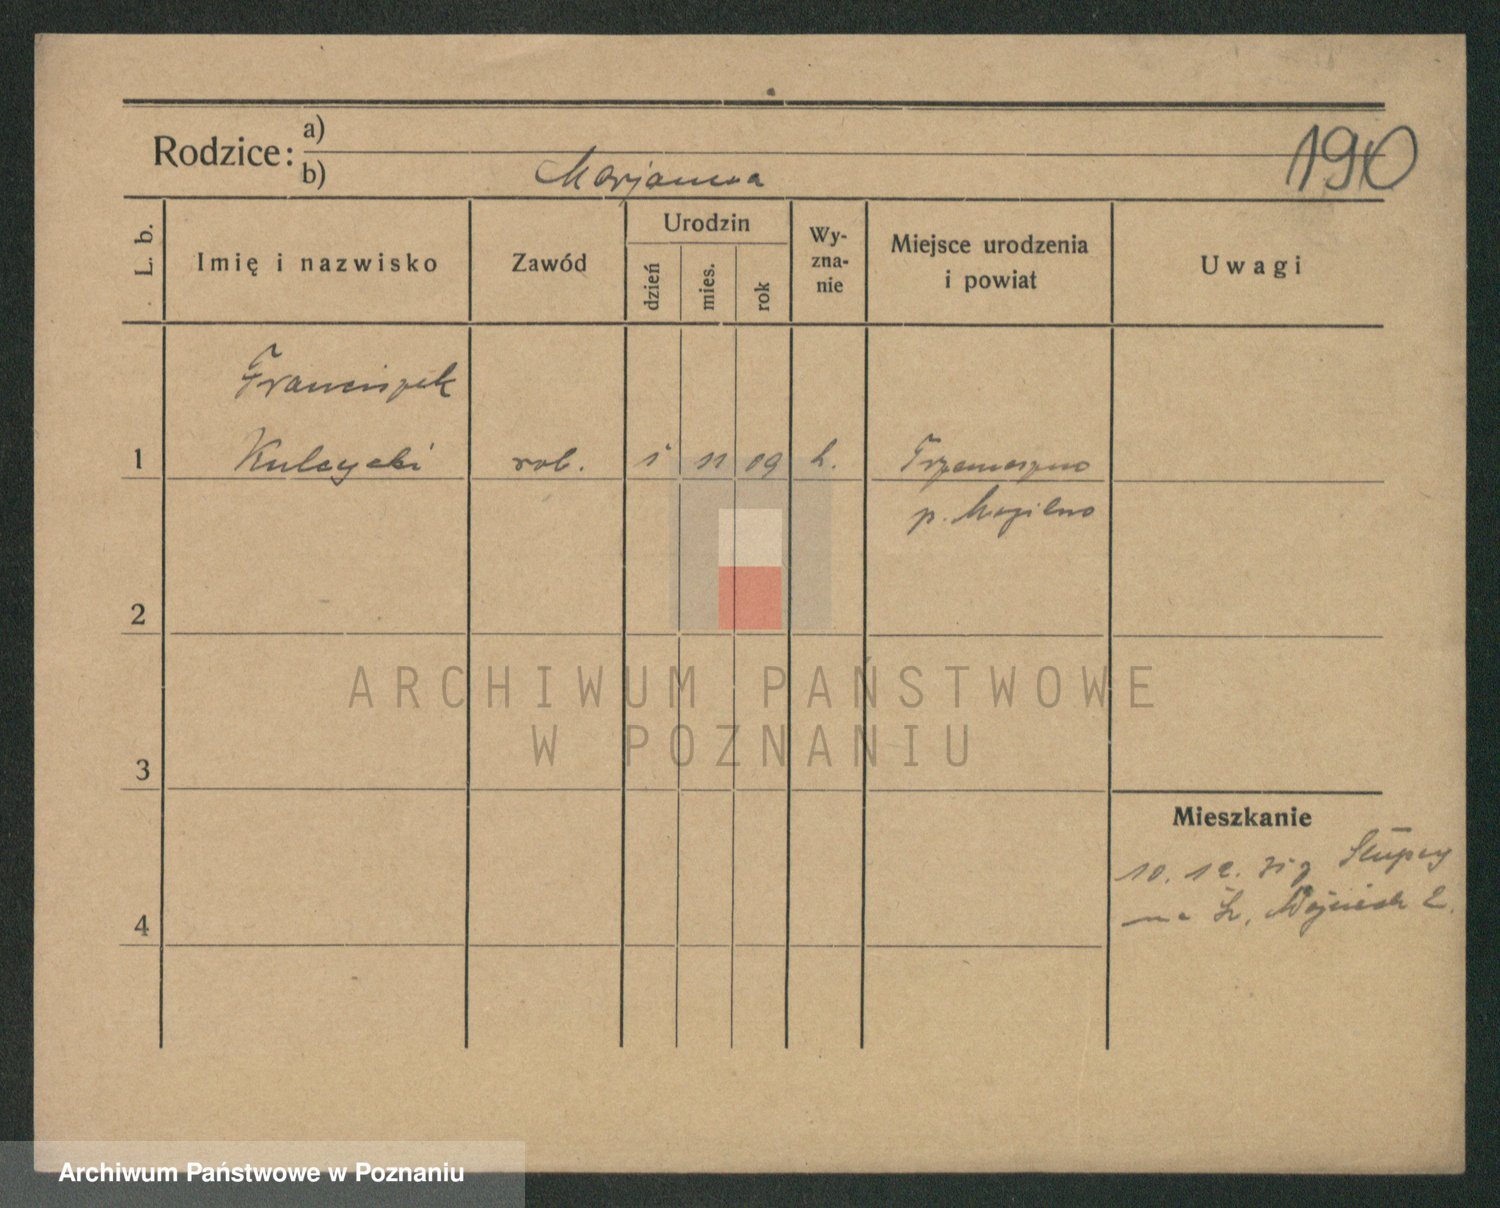 190
Rodzice:
a)
b) Marjanna
L. b.
Imię i nazwisko
Zawód
Urodzin
dzień
mies.
rok
Wy-
zna-
nie
Miejsce urodzenia
i powiat
Uwagi
Franciszek
1 Kulczycki rob. 1 11 09 k. Trzemeszno
p. Mogilno
2
3
4
Mieszkanie
10. 12. Słupcy
na Św. Wojciech 2.
ARCHIWUM PAŃSTWOWE
W POZNANIU
Archiwum Państwowe w Poznaniu